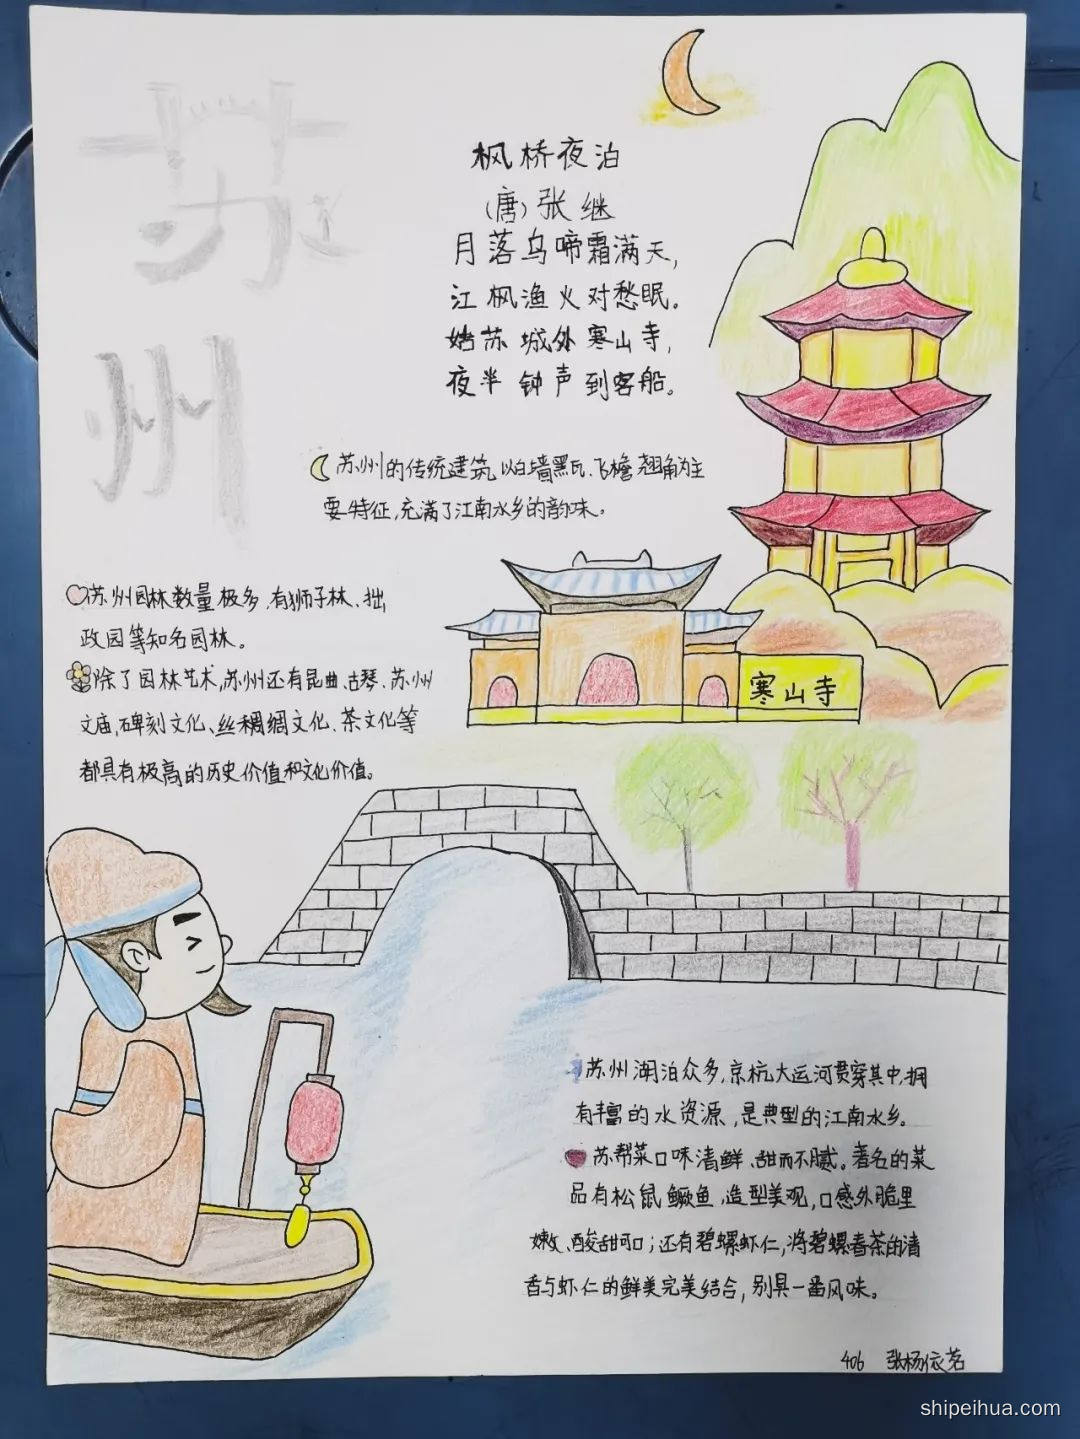 苏
州
枫桥夜泊
(唐)张继
月落乌啼霜满天,
江枫渔火对愁眠。
姑苏城外寒山寺,
夜半钟声到客船。
苏州的传统建筑,以白墙黑瓦、飞檐翘角为主
要特征,充满了江南水乡的韵味。
苏州园林数量极多,有狮子林、拙
政园等知名园林。
除了园林艺术,苏州还有昆曲、古琴、苏州
文庙,碑刻文化、丝稠绸文化、茶文化等
都具有极高的历史价值和文化价值。
寒山寺
苏州湖泊众多,京杭大运河贯穿其中,拥
有丰富的水资源,是典型的江南水乡。
苏帮菜口味清鲜、甜而不腻。著名的菜
品有松鼠鳜鱼,造型美观,口感外脆里
嫩、酸甜可口;还有碧螺虾仁,将碧螺春茶的清
香与虾仁的鲜美完美结合,别具一番风味。
406 张杨依茗
shipeihua.com